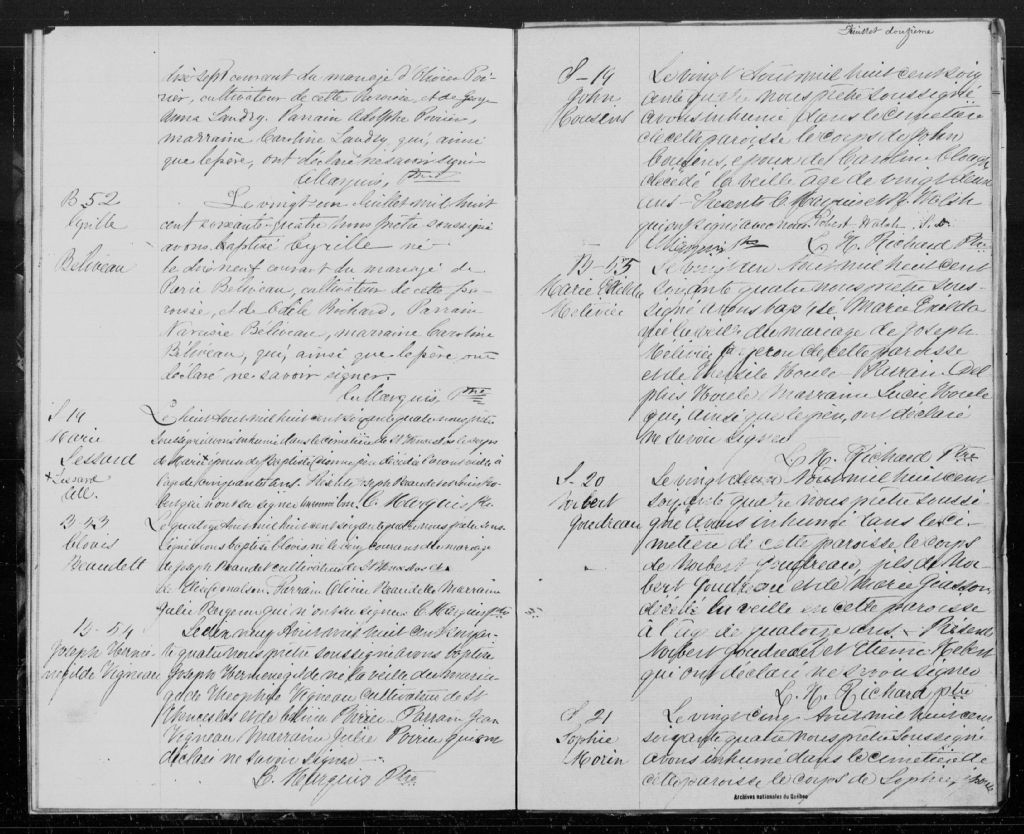 dix sept courant du mariage d'Olivier Poi-
rier, cultivateur de cette Paroisse, et de
Anna Landry. Parrain Adolphe Poirier,
marraine Caroline Landry, qui, ainsi
que le père, ont déclaré ne savoir signer
C. Marquis, Ptre
B 52
Cyrille
Béliveau
Le vingt-un Juillet mil huit
cent soixante-quatre nous prêtre soussigné
avons baptisé Cyrille né
le dix neuf courant du mariage de
Béliveau, cultivateur de cette pa-
roisse, et de Odile Richard. Parrain
Narcisse Béliveau, marraine Caroline
Béliveau, qui, ainsi que le père ont
déclaré ne savoir signer.
C. Marquis Ptre
Marie
Lessard
Le huit Aout mil huit cent soixante quatre nous prêtre
soussigné avons inhumé dans le cimetière de St Wenceslas le corps
de Marie épouse de Baptiste
C. Marquis Ptre
B-53
Clovis
Beaudett
Le quatorze Aout mil huit cent soixante quatre nous prêtre sous-
signé avons baptisé Clovis né le cinq courant du mariage
de Joseph Beaudet cultivateur de St Wenceslas et
de Parrain Olivier Beaudette Marraine
Julie qui n'ont su signer C. Marquis ptre
B-54
Joseph Herme-
negilde Vigneau
Le dix neuf Aout mil huit cent soixan-
te quatre nous prêtre soussigné avons baptisé
Joseph Hermenegilde né la veille du maria-
ge de Theophile Vigneau cultivateur de St
Wenceslas et de Poirier Parrain Jean
Vigneau Marraine Julie Poirier qui ont
déclaré ne savoir signer
C. Marquis Ptre
Feuillet douzième
S-19
John
Housens
Le vingt Aout mil huit cent soix
ante quatre nous prêtre soussigné
avons inhumé dans le cimetière
de cette paroisse le corps de John
époux de Caroline
décédé la veille âgé de vingt deux
ans - Présents
qui ont signé avec nous Robert Walsh
C. Marquis Ptre
L. H. Richard Ptre
B-55
Marie Exilda
Le vingt deux Aout mil huit cent
soixante quatre nous prêtre sous-
signé avons baptisé Marie Exilda
née la veille du mariage de Joseph
forgeron de cette paroisse
et de Houle - Parrain
Houle Marraine Lucie Houle
qui, ainsi que le père, ont déclaré
ne savoir signer
L. H. Richard Ptre
S-20
Norbert
Goudreau
Le vingt deux Aout mil huit cent
soixante quatre nous prêtre soussi-
gné avons inhumé dans le ci-
metière de cette paroisse le corps
de Norbert Goudreau, fils de Nor-
bert Goudreau et de Marie
décédé la veille en cette paroisse
à l'âge de quatorze ans. - Présents
Norbert Goudreau et Hebert
qui ont déclaré ne savoir signer
L. H. Richard ptre
S. 21
Sophie
Morin
Le vingt cinq Aout mil huit cent
soixante quatre nous prêtre soussigné
avons inhumé dans le cimetière de
cette paroisse le corps de Sophie, épouse
Archives nationales du Québec